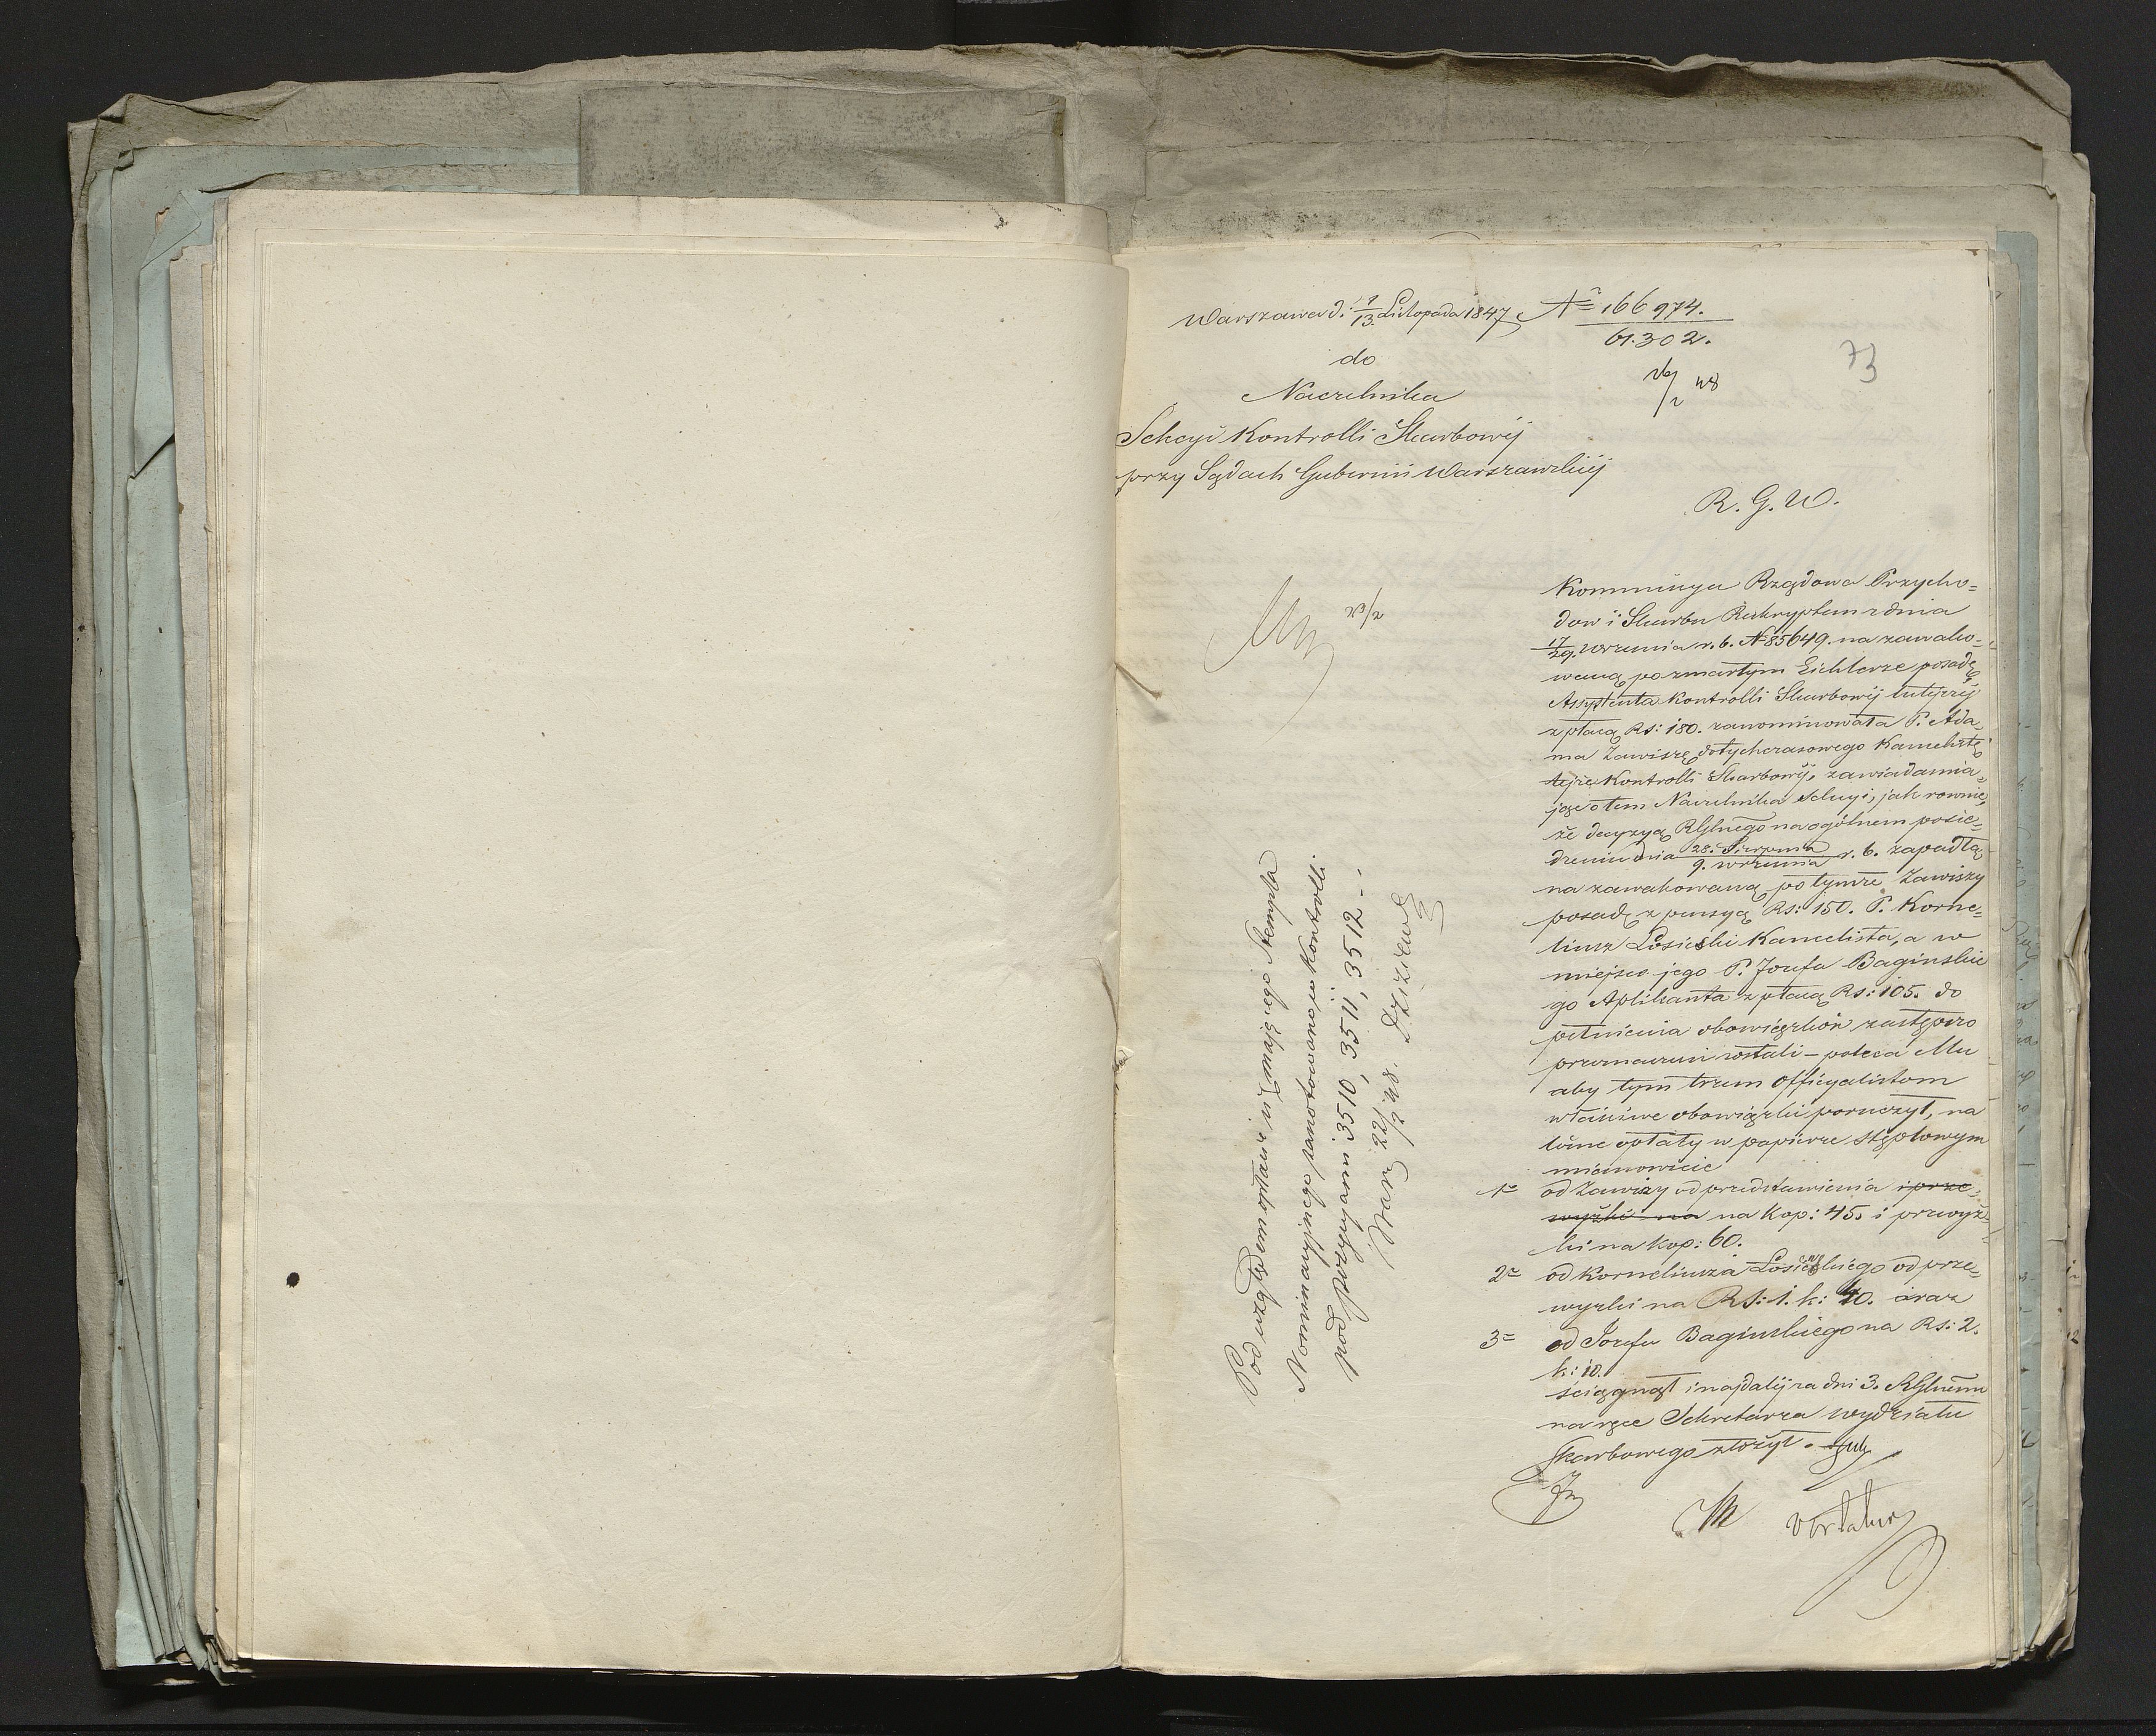 Warszawa d: 1/13 Listopada 1847
N° 166974.
61.302.
73
do
Naczelnika
Sekcyi Kontrolli Skarbowéj
przy Sądach Gubernii Warszawskiéj
R. G. W.
Kommissya Rządowa Przycho=
dow i Skarbu Reskryptem z dnia
17/29. Wrzesnia r. b. N 85649. na zawako=
waną po zmarłym Eichlerze posadę
Assystenta Kontrolli Skarbowéj tutéjszéj
z płacą Rs: 180. zanominowała P. Ada
ma Zawiszę dotychczasowego Kancelistę
tejże Kontrolli Skarbowéj, zawiadamia=
jąc o tem Naczelnika Sekcyi, jak rownie,
że decyzyą RGlnego na ogólnem posie=
dzeniu dnia 28. Sierpnia/9. Wrzesnia r. b. zapadłą
na zawakowaną po tymże Zawiszy
posadę z pensyą Rs: 150. P. Korne=
liusz Łosieski Kancelista, a w
miejsce jego P. Jozefa Baginskie
go Aplikanta z płacą Rs: 105. do
pełnienia obowiązków zastępczo
przeznaczeni zostali – poleca Mu
aby tym trzem officyalistom
właściwe obowiązki poruczył, na
leżne opłaty w papierze stęplowym
mianowicie
1° od Zawiszy od przedstawienia i prze=
wyżki na na kop: 45. i przewyż=
ki na kop: 60.
2° od Korneliusza Łosieskiego od prze=
wyżki na Rs: 1. k: 40. oraz
3° od Jozefa Baginskiego na Rs: 2.
k: 10.
ściągnął i najdaléj za dni 3. RGlnemu
na ręce Sekretarza Wydziału
Skarbowego złożył.
vertatur
Pod względem opłaty i mającego Stempla
Nominacyjnego zanotowano w Kontrolli
pod pozycyami 3510, 3511, 3512.
Warz 22/2 48.